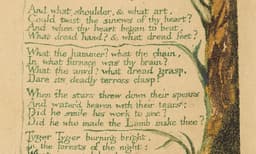 And what shoulder, & what art,
Could twist the sinews of thy heart?
And when thy heart began to beat,
What dread hand? & what dread feet?
What the hammer? what the chain,
In what furnace was thy brain?
What the anvil? what dread grasp,
Dare its deadly terrors clasp!
When the stars threw down their spears
And water'd heaven with their tears:
Did he smile his work to see?
Did he who made the Lamb make thee?
Tyger Tyger burning bright,
In the forests of the night: